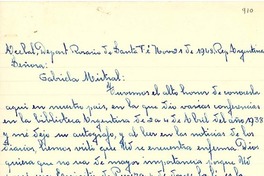 910
Uchal, Depart Rosario de Santa Fé Novbre de 1948, Rep. Argentina
Señora:
Gabriela Mistral:
Tuvimos el alto honor de conocerla
aqui en nuestro pais, en la que dio varias conferencias
en la biblioteca Argentina de 2 a 4 de Abril del año 1938
y me dejo su autografo, y al leer en las noticias de los
diarios, hemos visto que Ud se encuentra enferma Dios
quiera que no sea de mayor importancia porque Ud